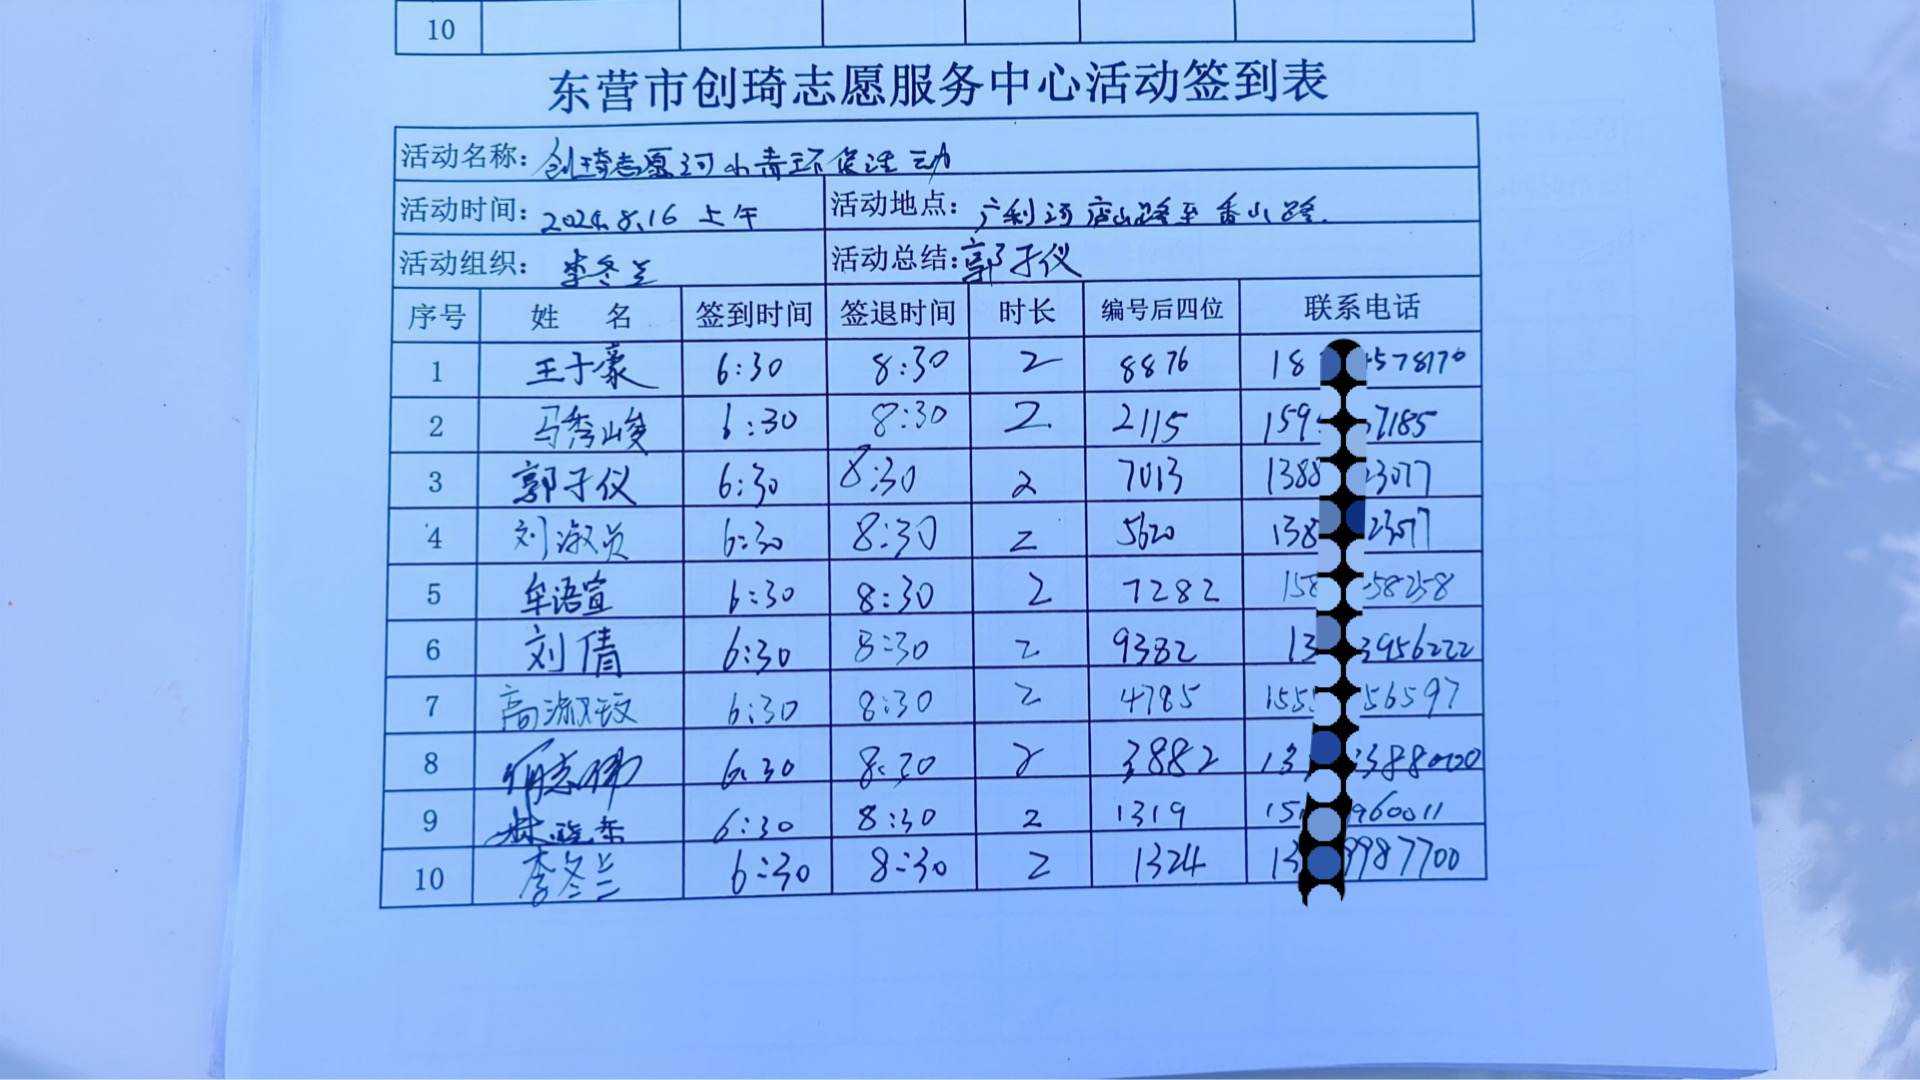 10
东营市创琦志愿服务中心活动签到表
活动名称: 创琦志愿河小青环保活动
活动时间: 2024.8.16 上午 活动地点: 广利河庐山路至香山路.
活动组织: 李冬兰 活动总结: 郭子仪
序号 姓 名 签到时间 签退时间 时长 编号后四位 联系电话
1 王子豪 6:30 8:30 2 8876 18 578170
2 马秀峻 6:30 8:30 2 2115 159 7185
3 郭子仪 6:30 8:30 2 7013 1388 3077
4 刘淑员 6:30 8:30 2 5620 138 23077
5 牟语宣 6:30 8:30 2 7282 158 58258
6 刘倩 6:30 8:30 2 9382 13 3956222
7 高淑玟 6:30 8:30 2 4785 155 56597
8 6:30 8:30 2 3882 13 3880000
9 6:30 8:30 2 1319 15 960011
10 李冬兰 6:30 8:30 2 1324 13 9987700